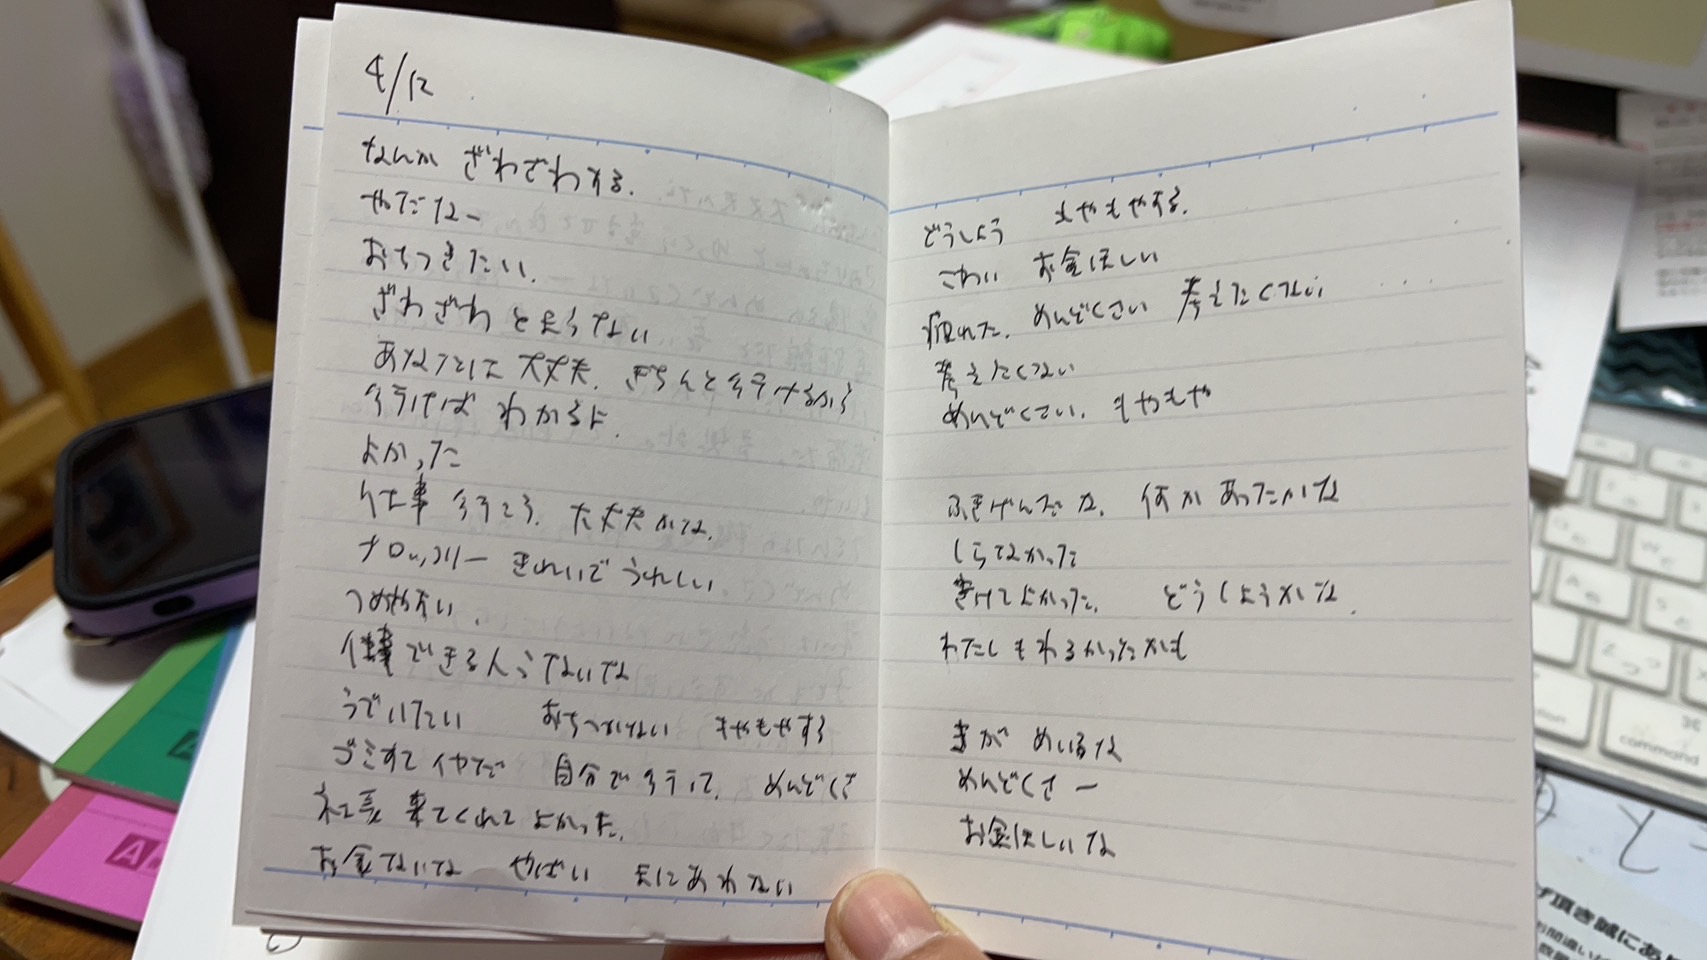 4/12
なんか ざわざわする.
やだなー
おちつきたい.
ざわざわ とまらない
あなたとに 大丈夫. きちんと行うけるから
行うけば わかるよ.
よかった
仕事 行こう. 大丈夫かな.
ブロッコリー きれいで うれしい
つめやすい.
仕事できる人 少ないな
うでいたい おちつかない もやもやする
ゴミすて イヤだ 自分で行って. めんどくさ
社長 来てくれて よかった.
お金ないな やばい まにあわない
どうしよう もやもやする.
こわい お金ほしい
疲れた. めんどくさい 考えたくない
考えたくない
めんどくさい. もやもや
ふきげんだな. 何か あったかな
しらなかった
きけてよかった. どうしようかな.
わたしもわるかったかも
きが めいるな
めんどくさー
お金ほしいな
command